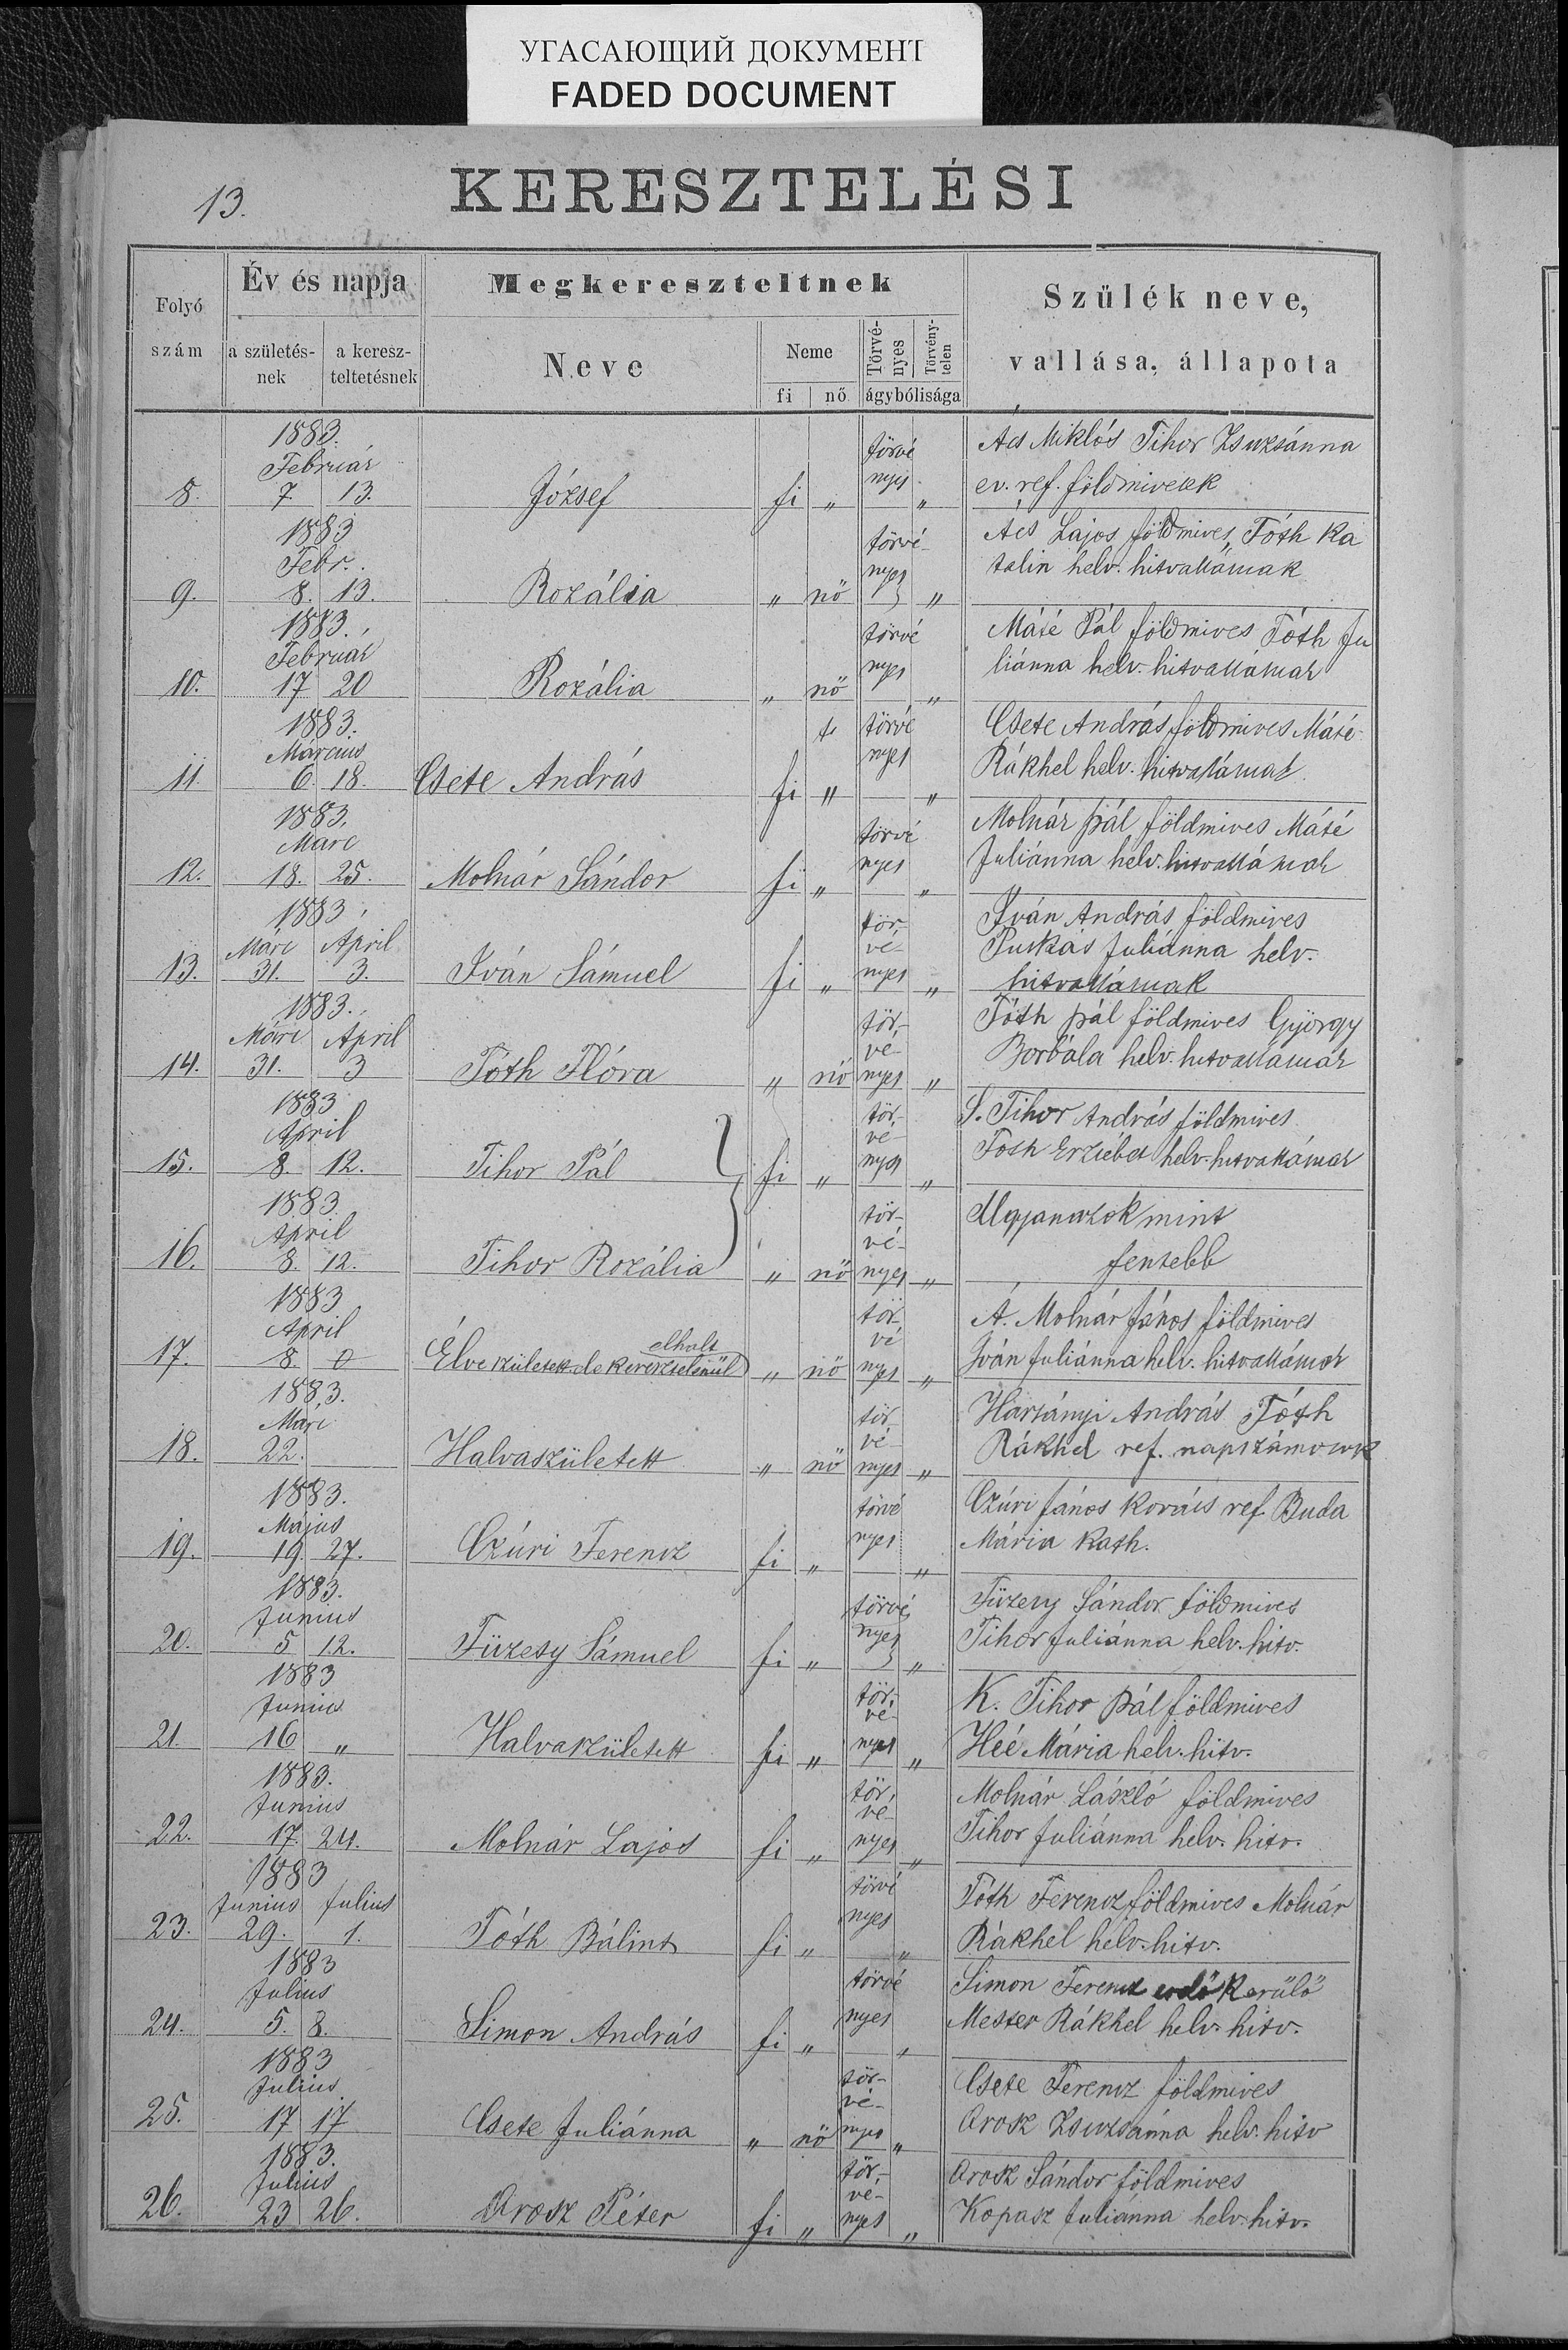 УГАСАЮЩИЙ ДОКУМЕНТ
FADED DOCUMENT
13.
KERESZTELÉSI
Folyó szám
Év és napja
a születésnek
a kereszteltetésnek
Megkereszteltnek
Neve
Neme
fi nő
Törvényes
Törvénytelen
ágybólisága
Szülék neve,
vallása, állapota
1883.
Február
8. 7 13. József fi „ törvé
nyes „
Ács Miklós Tihor Zsuzsánna
ev. ref. földmivesek
1883
Febr.
9. 8. 13. Rozália „ nő törvé-
nyes „
Ács Lajos földmives, Tóth Ka
talin helv. hitvallásuak
1883.
Február
10. 17 20 Rozália „ nő törvé
nyes „
Máté Pál földmives Tóth Ju
liánna helv. hitvallásuak
1883.
Március
11. 6. 18. Csete András fi „ törvé
nyes „
Csete András földmives Máté
Rákhel helv. hitvallásuak
1883.
Marc
12. 18. 25. Molnár Sándor fi „ törvé
nyes „
Molnár Pál földmives Máté
Juliánna helv. hitvallásuak
1883.
Márc April
13. 31. 3. Iván Sámuel fi „ tör-
vé-
nyes „
Iván András földmives
Puskás Juliánna helv.
hitvallásuak
1883.
Márc April
14. 31. 3 Tóth Flóra „ nő tör-
vé-
nyes „
Tóth Pál földmives György
Borbála helv. hitvallásuak
1883
April
15. 8. 12. Tihor Pál fi „ tör-
vé-
nyes „
S. Tihor András földmives
Tóth Erzsébet helv. hitvallásuak
1883.
April
16. 8. 12. Tihor Rozália „ nő tör-
vé-
nyes „
Ugyanazok mint
fentebb
1883
April
17. 8. 0 Élve született de kereszteletlenül elhalt „ nő tör
vé
nyes „
Á. Molnár János földmives
Iván Juliánna helv. hitvallásuak
1883.
Marc
18. 22. Halvaszületett „ nő tör-
vé-
nyes „
Harsányi András Tóth
Rákhel ref. napszámosok
1883.
Május
19. 19. 27. Czúri Ferencz fi „ törvé
nyes „
Czúri János kovács ref. Buda
Mária kath.
1883.
Junius
20. 5 12. Füzesy Sámuel fi „ törvé
nyes „
Füzesy Sándor földmives
Tihor Juliánna helv. hitv.
1883
Junius
21. 16 „ Halvaszületett fi „ tör-
vé-
nyes „
K. Tihor Pál földmives
Héé Mária helv. hitv.
1883.
Junius
22. 17. 24. Molnár Lajos fi „ tör-
vé-
nyes „
Molnár László földmives
Tihor Juliánna helv. hitv.
1883
Junius Julius
23. 29. 1. Tóth Bálint fi „ törvé
nyes „
Tóth Ferencz földmives Molnár
Rákhel helv. hitv.
1883
Julius
24. 5. 8. Simon András fi „ törvé
nyes „
Simon Ferencz erdőkerülő
Mester Rákhel helv. hitv.
1883
Julius
25. 17 17 Csete Juliánna „ nő tör-
vé-
nyes „
Csete Ferencz földmives
Orosz Zsuzsánna helv. hitv
1883.
Julius
26. 23 26. Orosz Péter fi „ tör-
vé-
nyes „
Orosz Sándor földmives
Kopasz Juliánna helv. hitv.